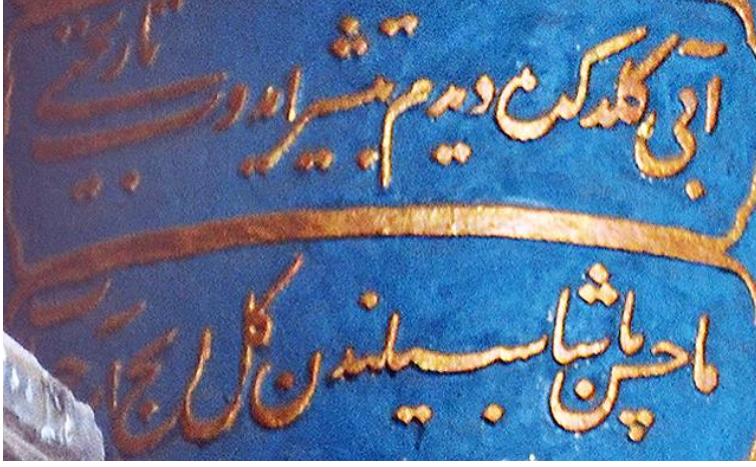 آبی کلدکده دیدم تبشیر ایدوب تاریخنی
ما حسن پاشا سبیلندن کل ایچ